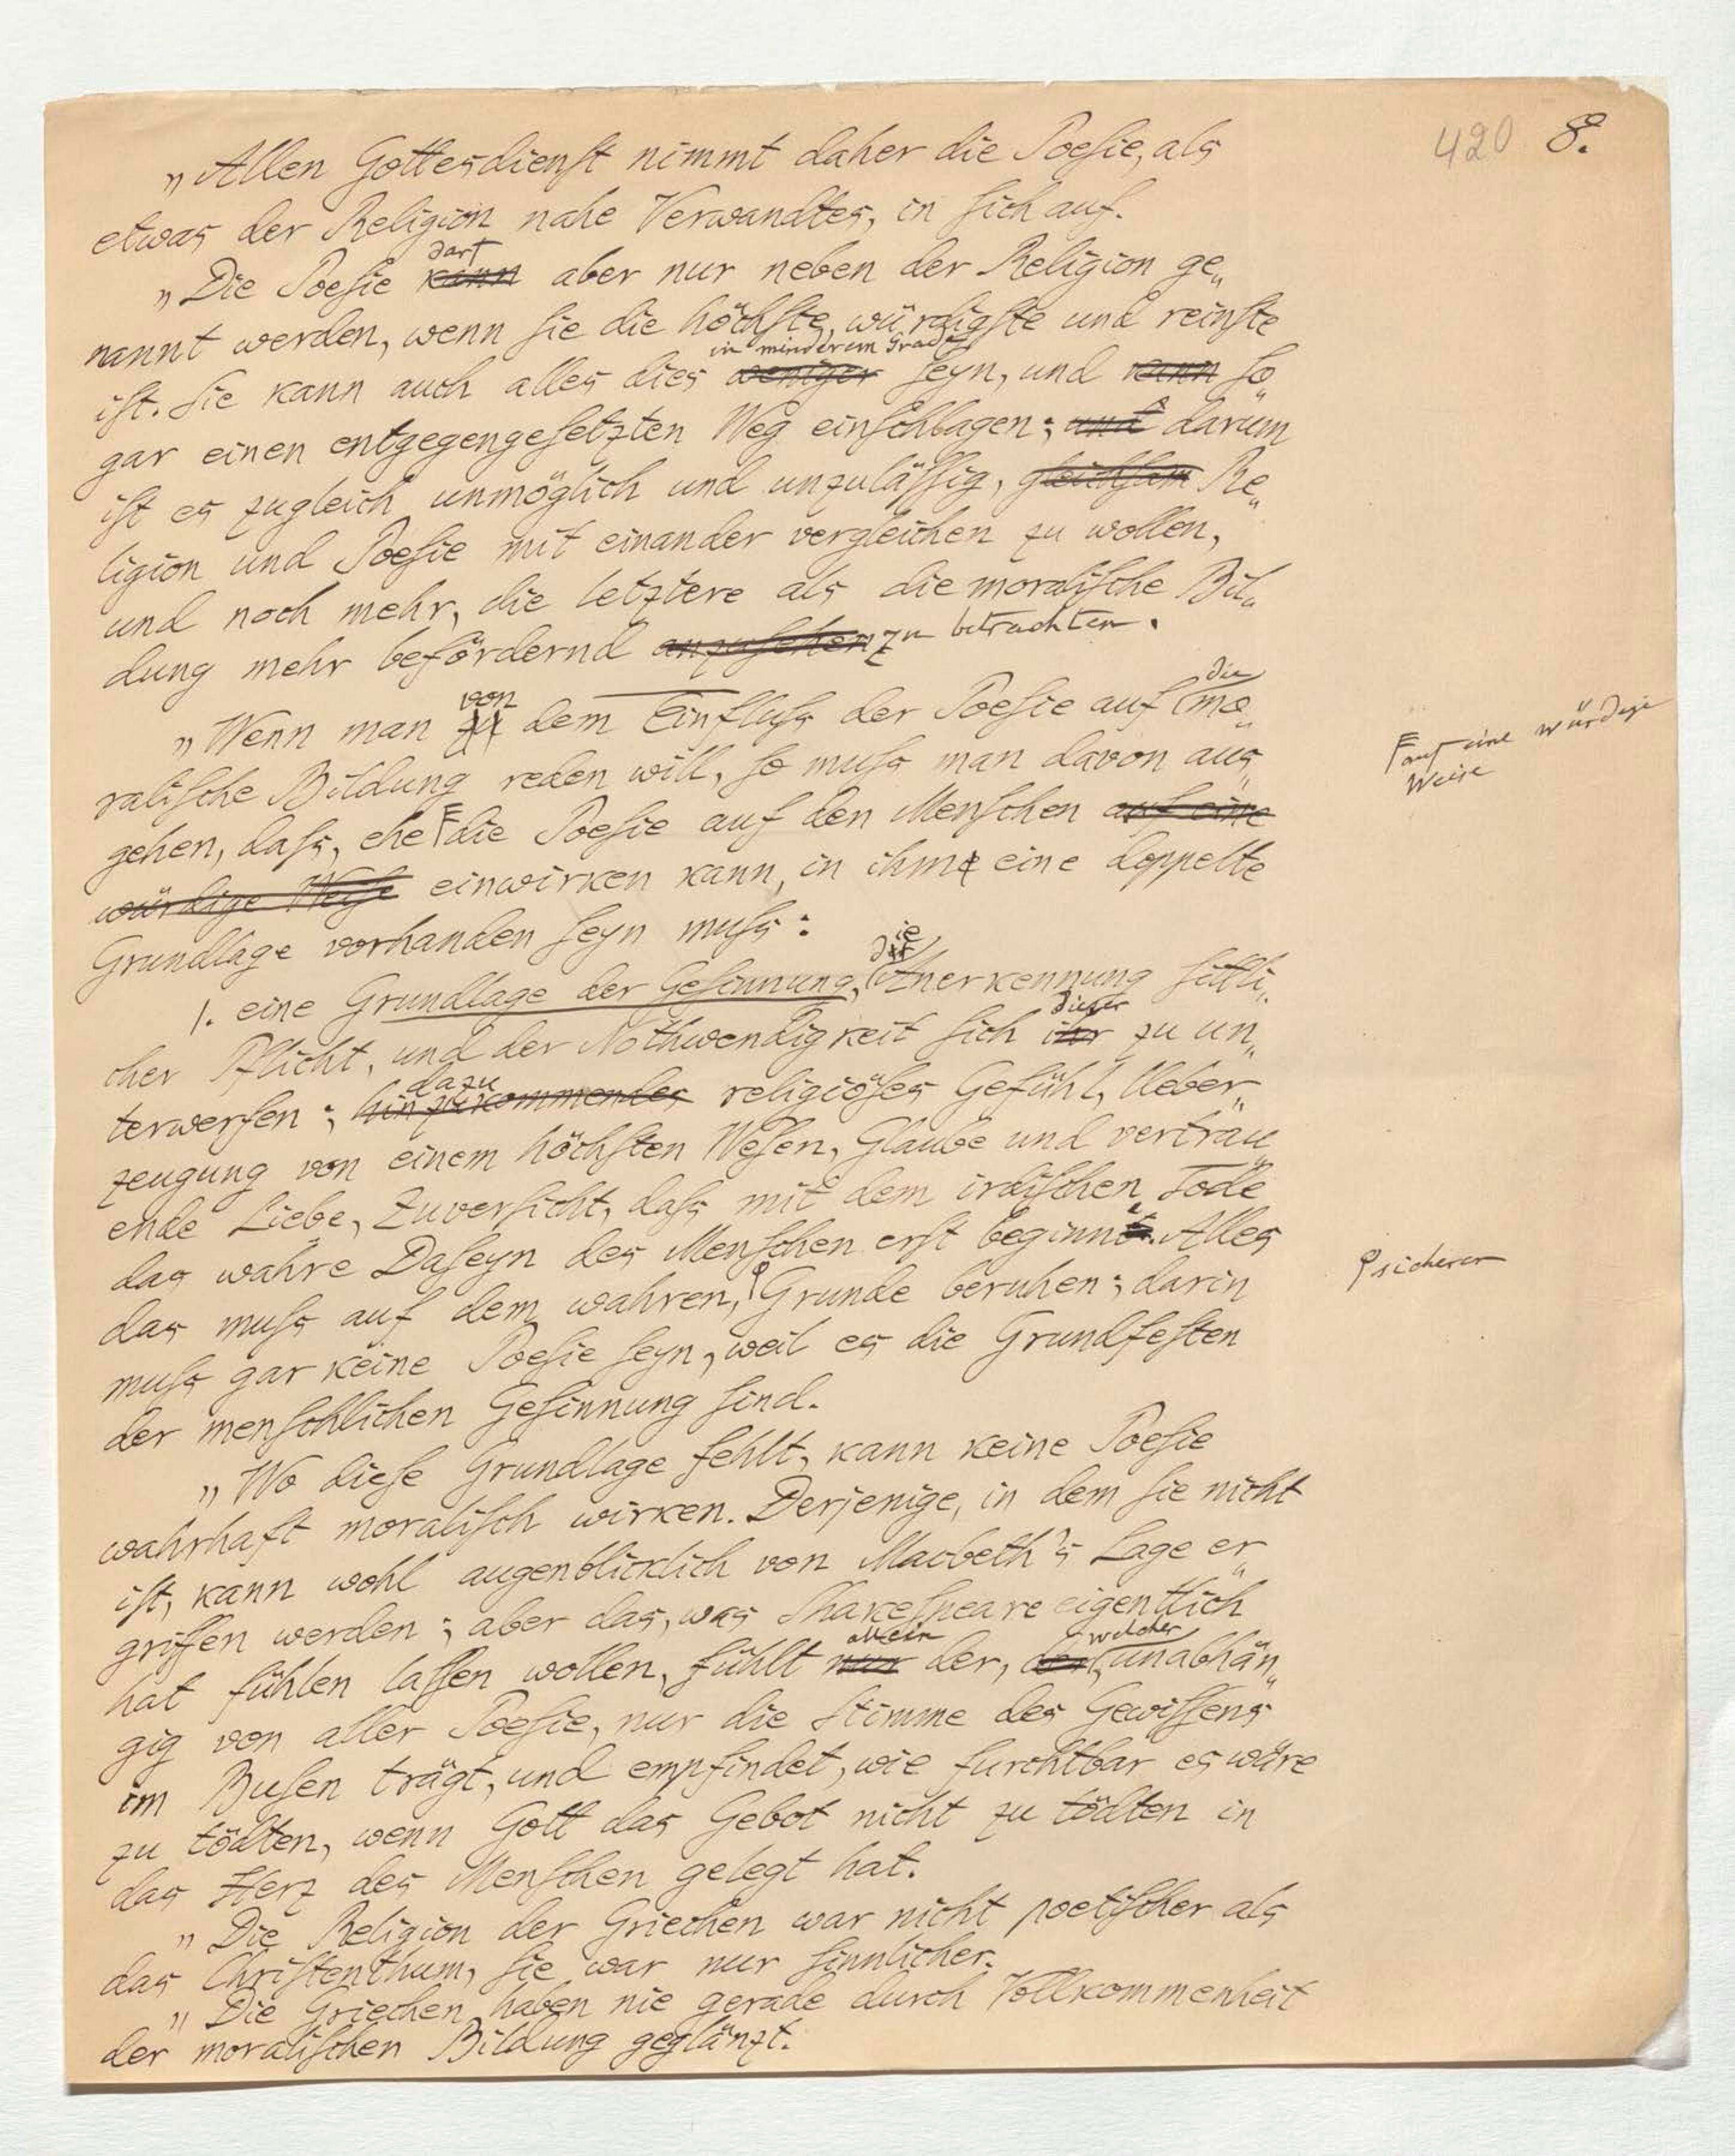 420 8.
„Allen Gottesdienst nimmt daher die Poesie, als
etwas der Religion nahe Verwandtes, in sich auf.
darf
„Die Poesie kann aber nur neben der Religion ge„
nannt werden, wenn sie die höchste, würdigste und reinste
in minderem Grade
ist. Sie kann auch alles dies weniger seyn, und kann so„
gar einen entgegengesetzten Weg einschlagen; und darum
ist es zugleich unmöglich und unzulässig, gleichsam Re„
ligion und Poesie mit einander vergleichen zu wollen,
und noch mehr, die letztere als die moralische Bil„
dung mehr befördernd anzusehen zu betrachten.
von die
„Wenn man zu dem Einfluss der Poesie auf mo„
ralische Bildung reden will, so muss man davon aus„
gehen, dass, ehe die Poesie auf den Menschen auf eine
auf eine würdige
Weise
würdige Weise einwirken kann, in ihm eine doppelte
Grundlage vorhanden seyn muss:
die
1. eine Grundlage der Gesinnung, Anerkennung sittli„
dieser
cher Pflicht, und der Nothwendigkeit sich ihr zu un„
dazu
terwerfen; hinzukommendes religiöses Gefühl, Ueber„
zeugung von einem höchsten Wesen, Glaube und vertrau„
ende Liebe, Zuversicht, dass mit dem irdischen Tode
das wahre Daseyn des Menschen erst beginne. Alles
das muss auf dem wahren, Grunde beruhen; darin
sicheren
muss gar keine Poesie seyn, weil es die Grundfesten
der menschlichen Gesinnung sind.
„Wo diese Grundlage fehlt, kann keine Poesie
wahrhaft moralisch wirken. Derjenige, in dem sie nicht
ist, kann wohl augenblicklich von Macbeth's Lage er„
griffen werden; aber das, was Shakespeare eigentlich
allein welcher
hat fühlen lassen wollen, fühlt nur der, der, unabhän„
gig von aller Poesie, nur die Stimme des Gewissens
im Busen trägt, und empfindet, wie furchtbar es wäre
zu tödten, wenn Gott das Gebot nicht zu tödten in
das Herz des Menschen gelegt hat.
„Die Religion der Griechen war nicht poetischer als
das Christenthum, sie war nur sinnlicher.
„Die Griechen haben nie gerade durch Vollkommenheit
der moralischen Bildung geglänzt.